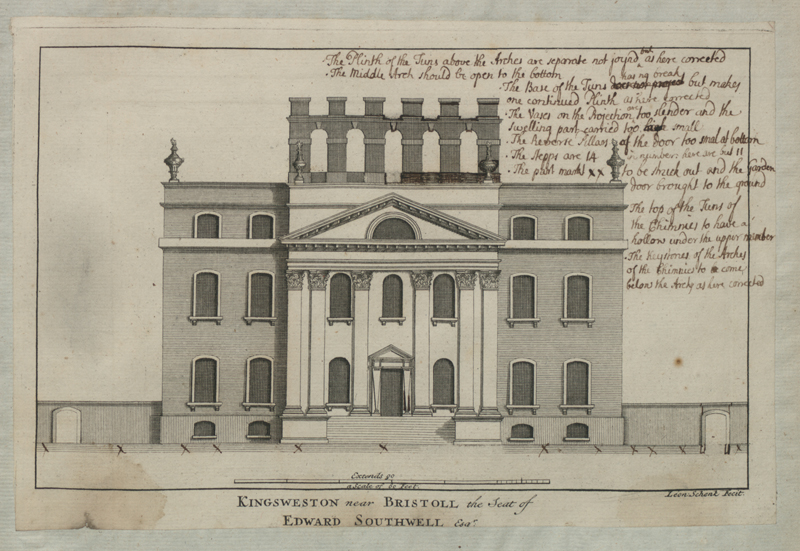 The Plinth of the Tuns above the Arches are separate not joynd but as here corrected
The Middle Arch should be open to the bottom
The Base of the Tuns has no break but makes
one continued Plinth as here corrected
The Vases on the Projection are too slender and the
swelling part carried too small
The Reverse Pillars of the door too smal at bottom
The Stepps are 14 numbers here are but 11
The part markt xx to be struck out and the Garden
door brought to the ground
The top of the Tuns of
the Chimnies to have a
hollow under the upper member
The Keystones of the Arches
of the Chimnies to come
below the Arch as here corrected
Extends 90
a Scale of 60 Feet.
Leon. Schenk Fecit.
KINGSWESTON near BRISTOLL the Seat of
EDWARD SOUTHWELL Esqr.